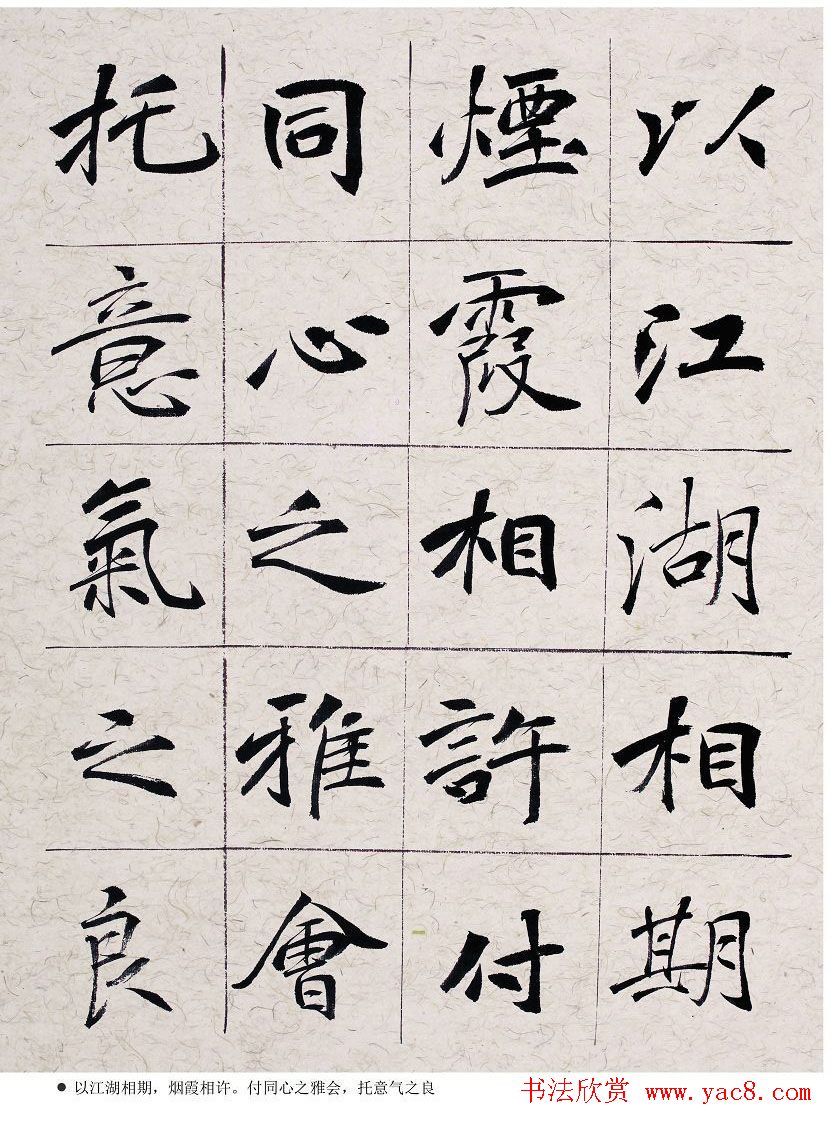 以江湖相期
煙霞相許付
同心之雅會
托意氣之良
● 以江湖相期，烟霞相许。付同心之雅会，托意气之良
书法欣赏 www.yac8.com